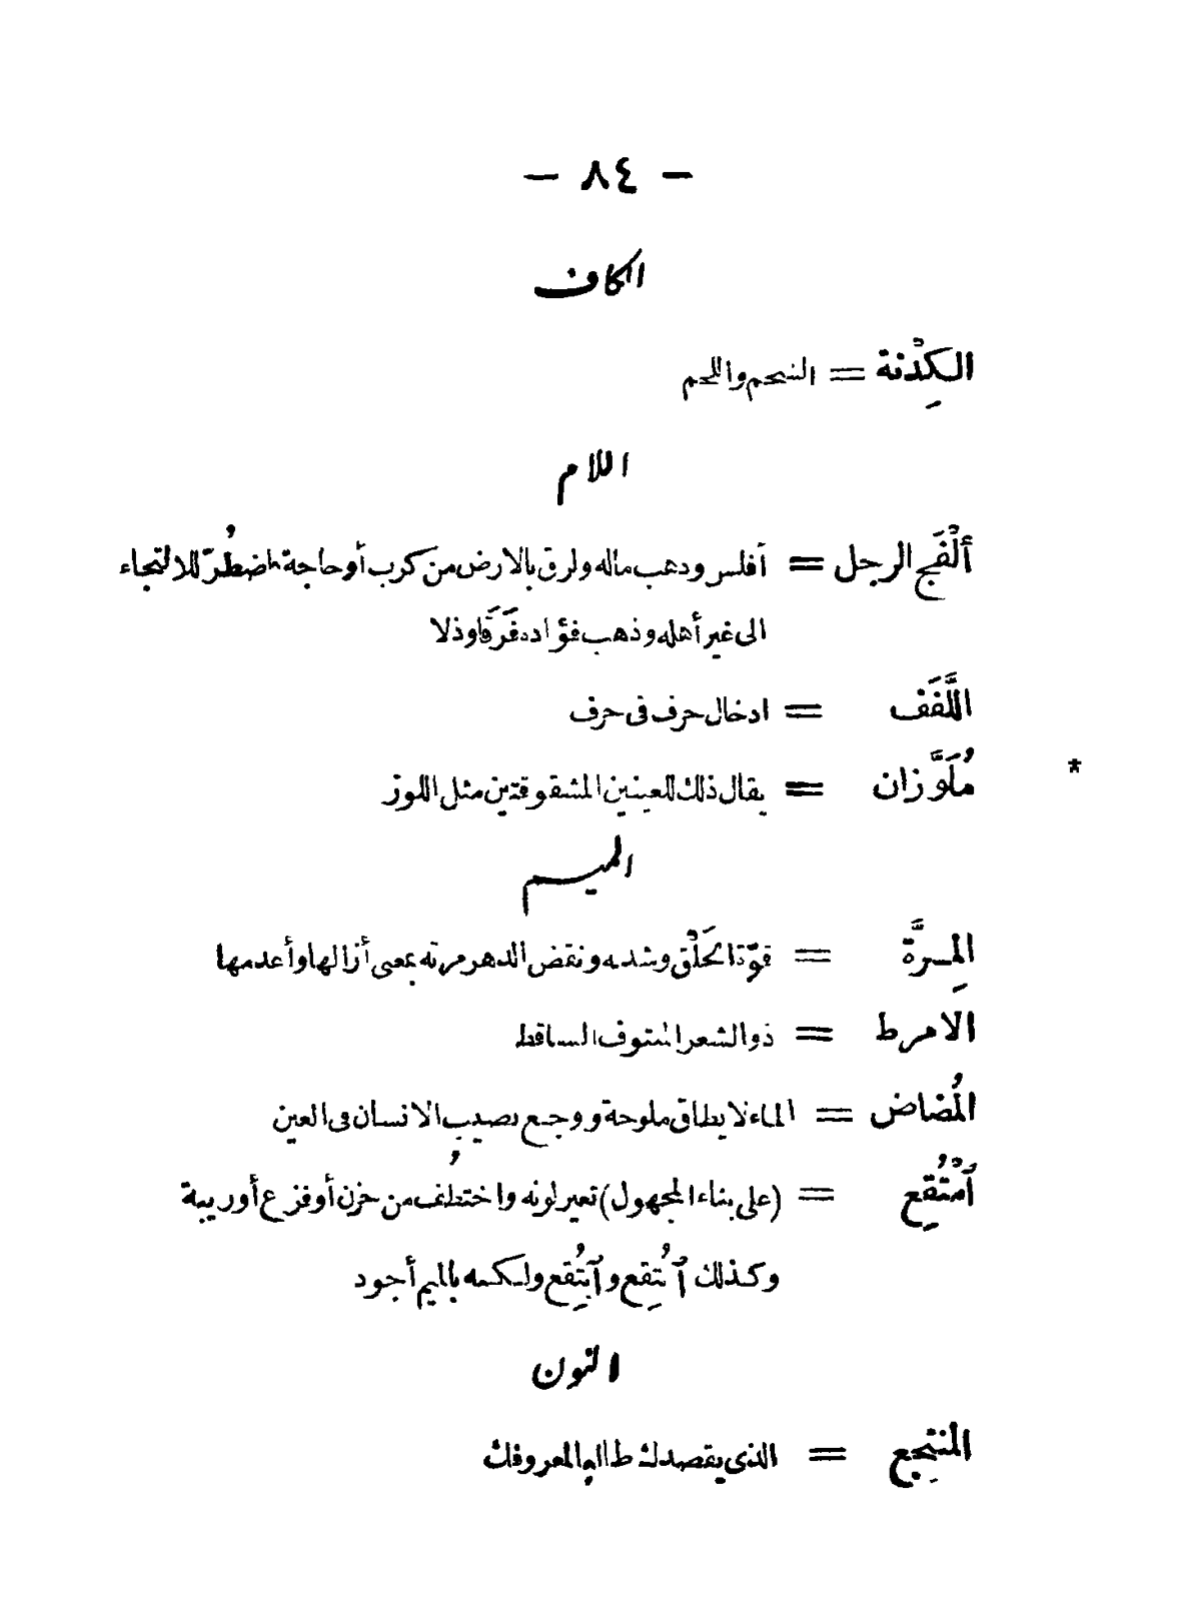 — ٨٤ —
الكاف
الكِدْنة = الشحم واللحم
اللام
ألْفَج الرجل = أفلس وذهب ماله ولزق بالارض من كرب أو حاجة واضطُرّ للالتجاء
الى غير أهله وذهب فؤاده فَرَقا وذلا
اللَّفَف = ادخال حرف فى حرف
* مُلَوَّزان = يقال ذلك للعينين المشقوقتين مثل اللوز
الميــم
المِـرَّة = قوّة الخَلْق وشدته ونقض الدهر مرته بمعنى أزالها وأعدمها
الامرط = ذو الشعر المنتوف الساقط
المُضاض = الماء لا يطاق ملوحة ووجع يصيب الانسان فى العين
ٱمْتُقِع = (على بناء المجهول) تغير لونه واختُطف من حزن أو فزع أو ريبة
وكذلك ٱنتُقِع وٱبتُقِع ولكنه بالميم أجود
النون
المنتجِع = الذى يقصدك طالبا لمعروفك